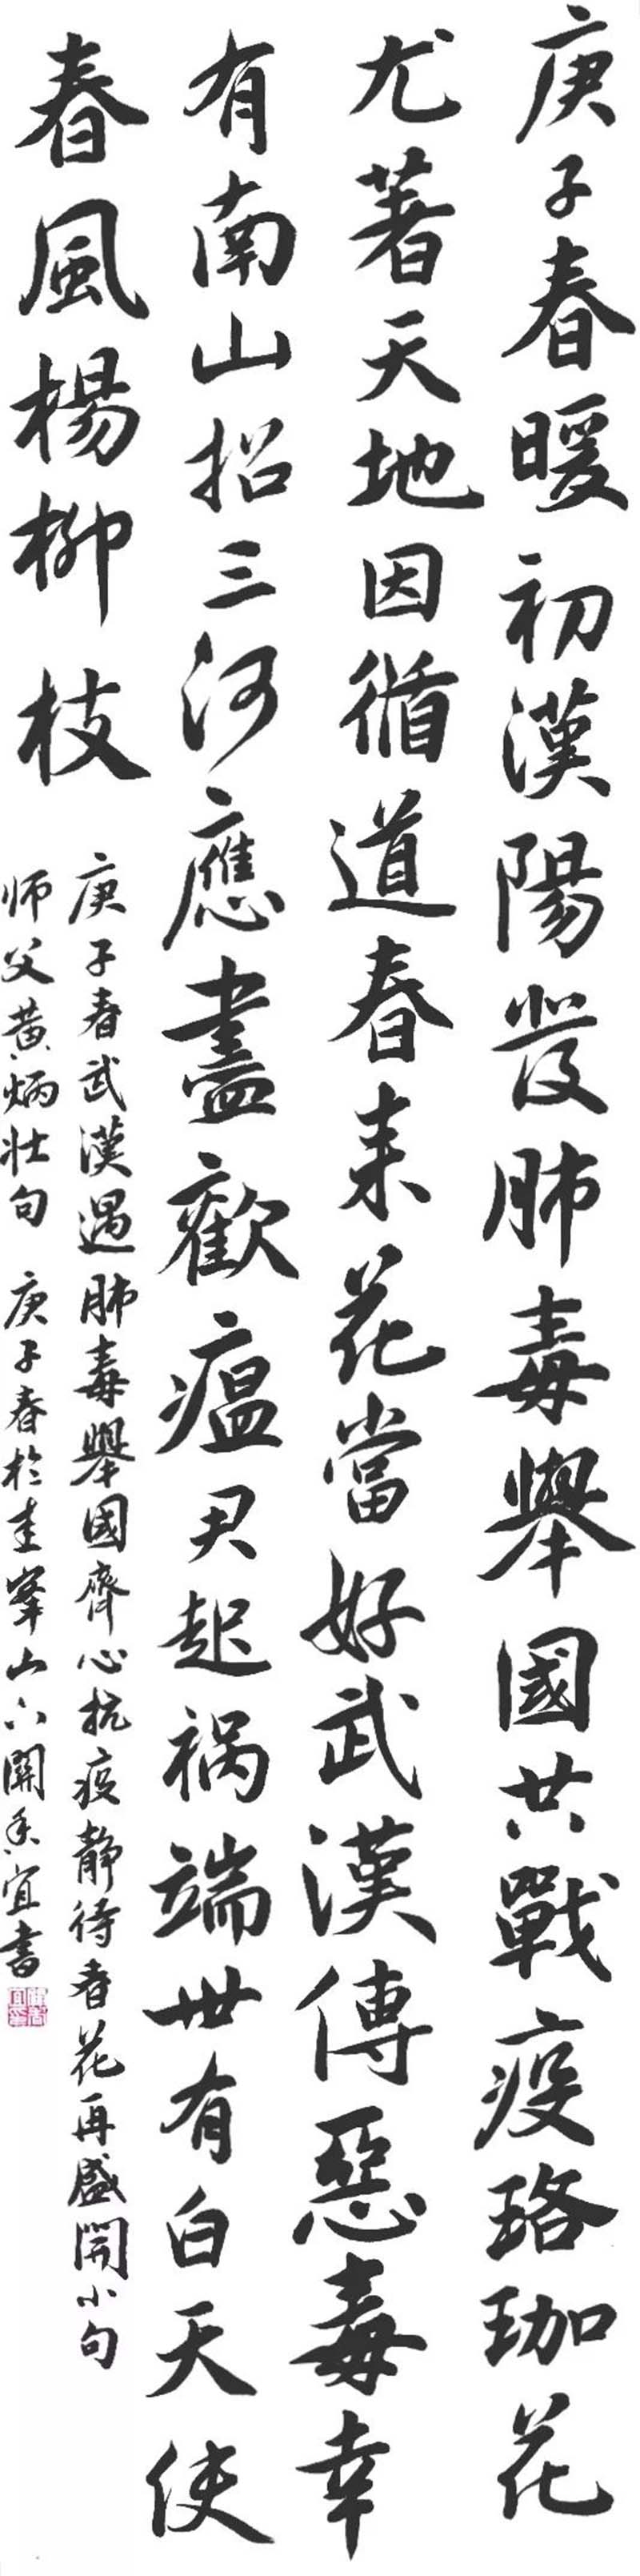 庚子春暖初漢陽發肺毒舉國共戰疫珞珈花
尤著天地因循道春来花當好武漢傳惡毒幸
有南山招三河應盡歡瘟君起祸端世有白天使
春風楊柳枝
庚子春武漢遇肺毒舉國齊心抗疫静待春花再盛開小句
师父黄炳壮句 庚子春於圭峯山下關秀宜書